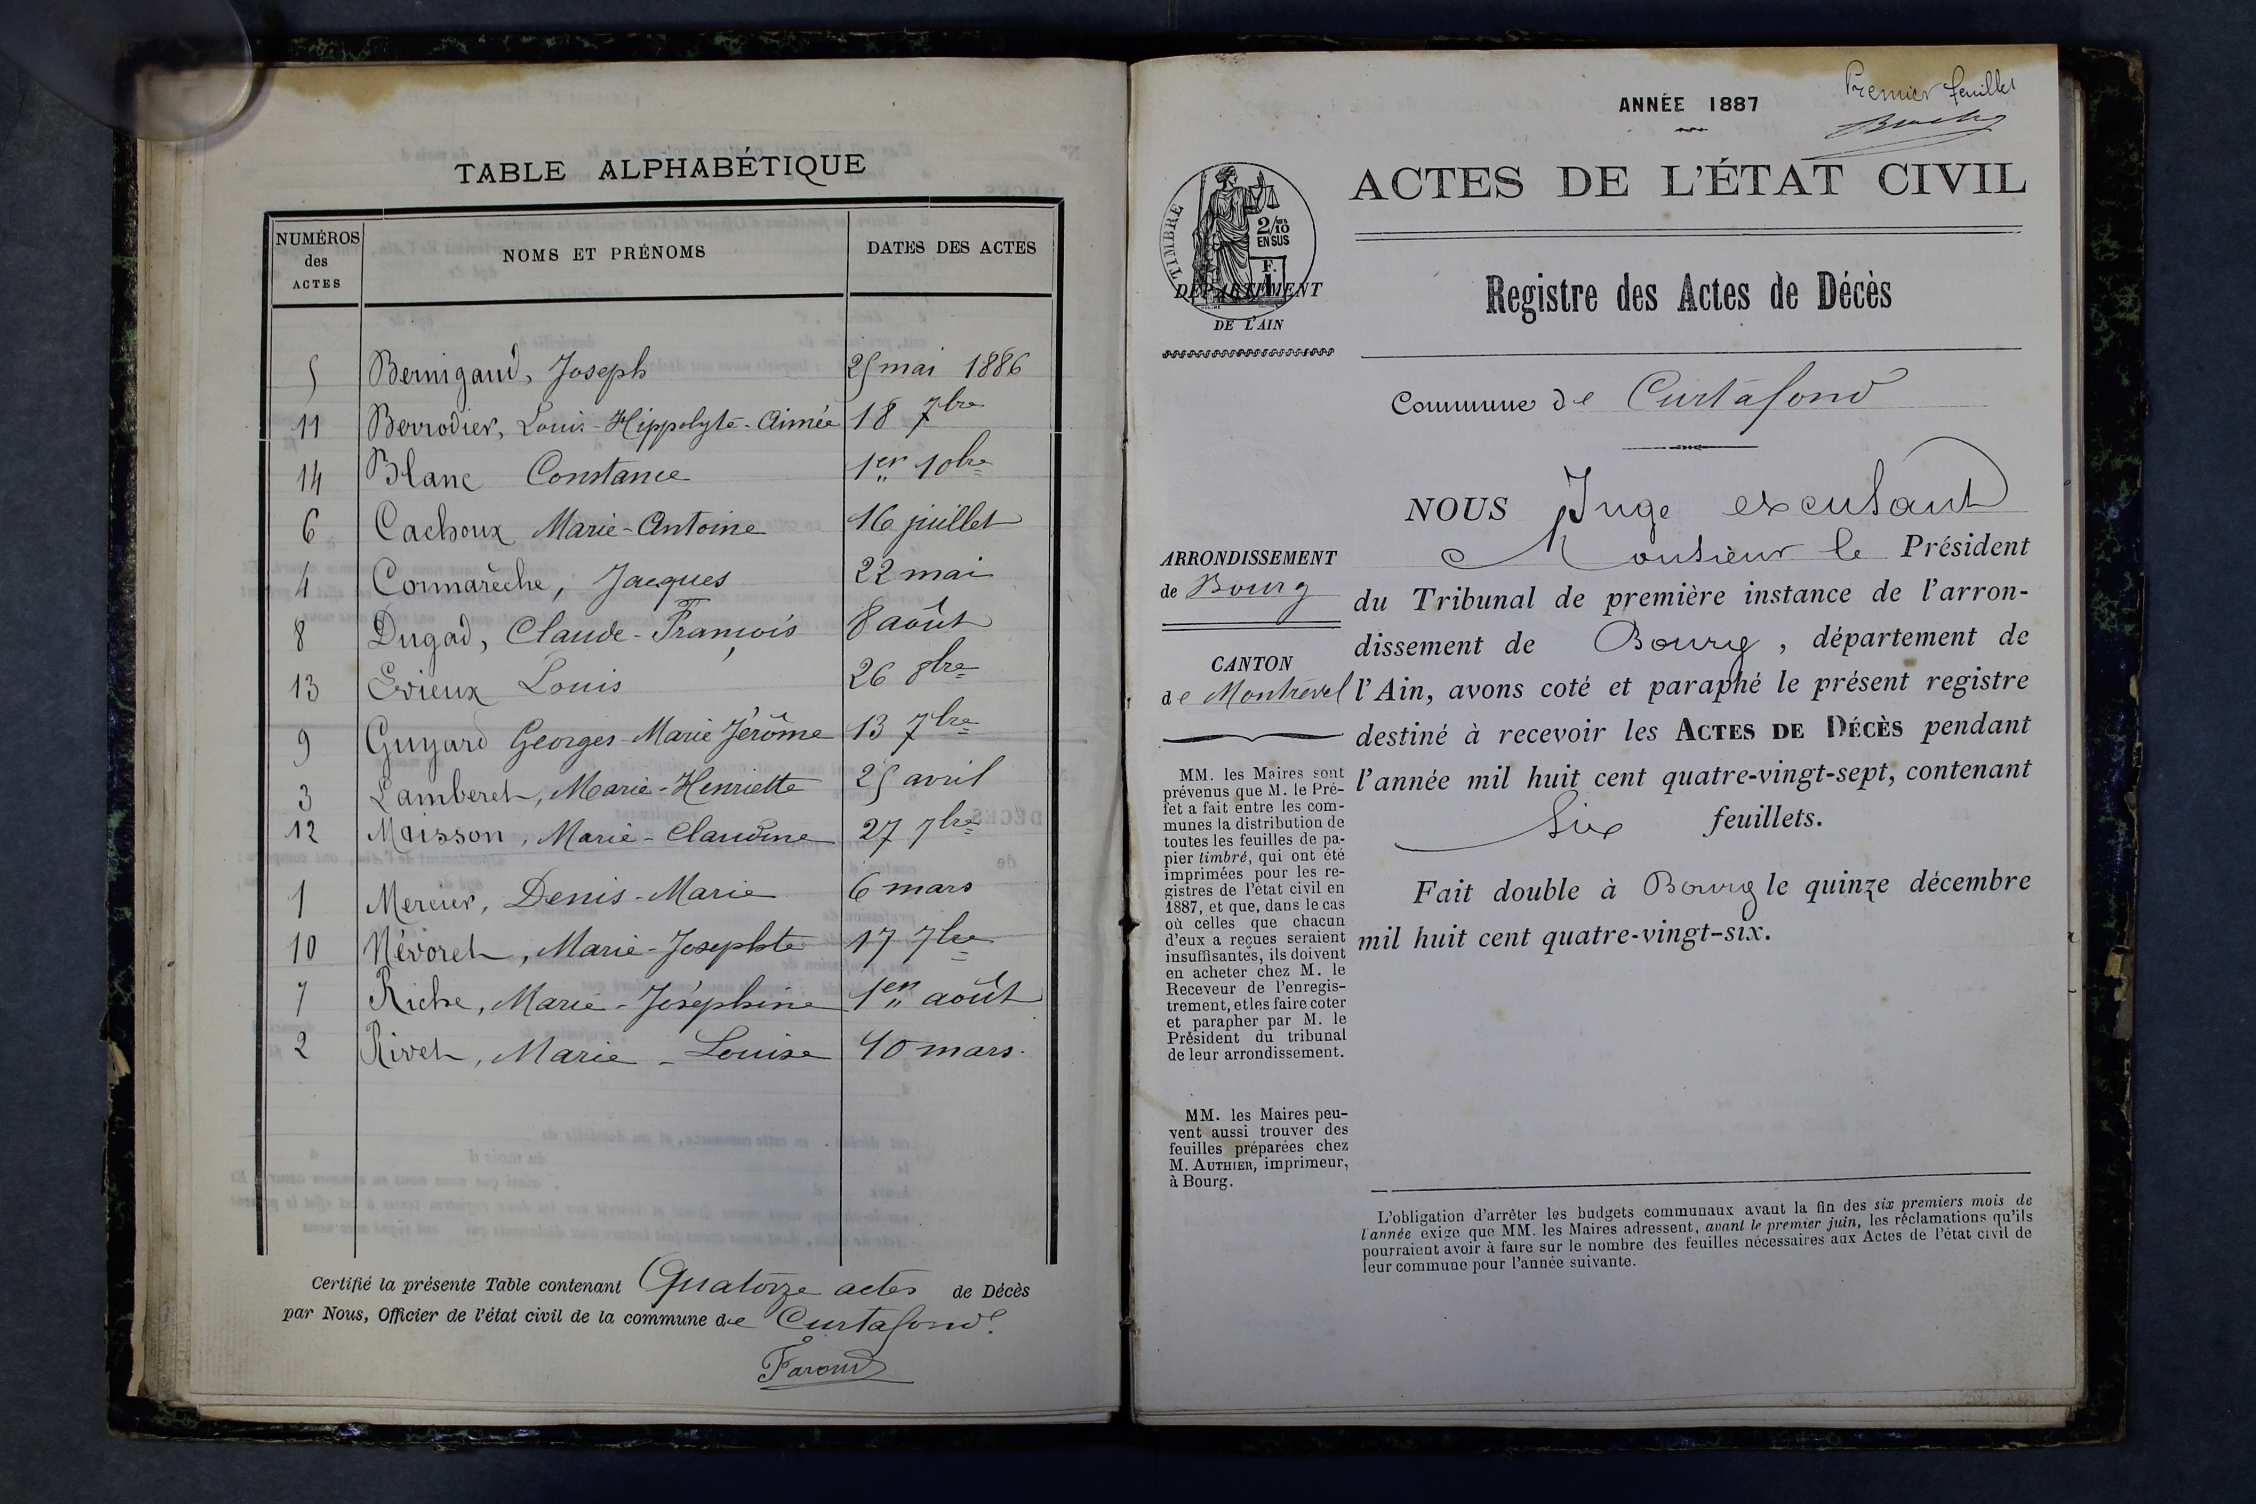 TABLE ALPHABÉTIQUE
NUMÉROS des ACTES NOMS ET PRÉNOMS DATES DES ACTES
5 Bernigaud, Joseph 25 mai 1886
11 Berrodier, Louis-Hippolyte-Aimée 18 7bre
14 Blanc Constance 1er 10bre
6 Cachoux Marie-Antoine 16 juillet
4 Cormarèche, Jacques 22 mai
8 Dugad, Claude-François 8 août
13 Evieux Louis 26 8bre
9 Guyard Georges-Marie Jérôme 13 7bre
3 Lamberet, Marie-Henriette 25 avril
12 Maisson, Marie-Claudine 27 7bre
1 Mercier, Denis-Marie 6 mars
10 Névoret, Marie-Josephte 17 7bre
7 Riche, Marie-Joséphine 1er août
2 Rivet, Marie-Louise 10 mars.
Certifié la présente Table contenant Quatorze actes de Décès
par Nous, Officier de l'état civil de la commune de Curtafond.
Premier feuillet
ANNÉE 1887
ACTES DE L'ÉTAT CIVIL
TIMBRE
2/10
EN SUS
F.
1
DÉPARTEMENT
DE L'AIN
Registre des Actes de Décès
Commune de Curtafond
ARRONDISSEMENT
de Bourg
CANTON
de Montrevel
MM. les Maires sont
prévenus que M. le Pré-
fet a fait entre les com-
munes la distribution de
toutes les feuilles de pa-
pier timbré, qui ont été
imprimées pour les re-
gistres de l'état civil en
1887, et que, dans le cas
où celles que chacun
d'eux a reçues seraient
insuffisantes, ils doivent
en acheter chez M. le
Receveur de l'enregis-
trement, et les faire coter
et parapher par M. le
Président du tribunal
de leur arrondissement.
MM. les Maires peu-
vent aussi trouver des
feuilles préparées chez
M. AUTHIER, imprimeur,
à Bourg.
NOUS Juge excusant
Monsieur le Président
du Tribunal de première instance de l'arron-
dissement de Bourg, département de
l'Ain, avons coté et paraphé le présent registre
destiné à recevoir les ACTES DE DÉCÈS pendant
l'année mil huit cent quatre-vingt-sept, contenant
Six feuillets.
Fait double à Bourg le quinze décembre
mil huit cent quatre-vingt-six.
L'obligation d'arrêter les budgets communaux avant la fin des six premiers mois de
l'année exige que MM. les Maires adressent, avant le premier juin, les réclamations qu'ils
pourraient avoir à faire sur le nombre des feuilles nécessaires aux Actes de l'état civil de
leur commune pour l'année suivante.